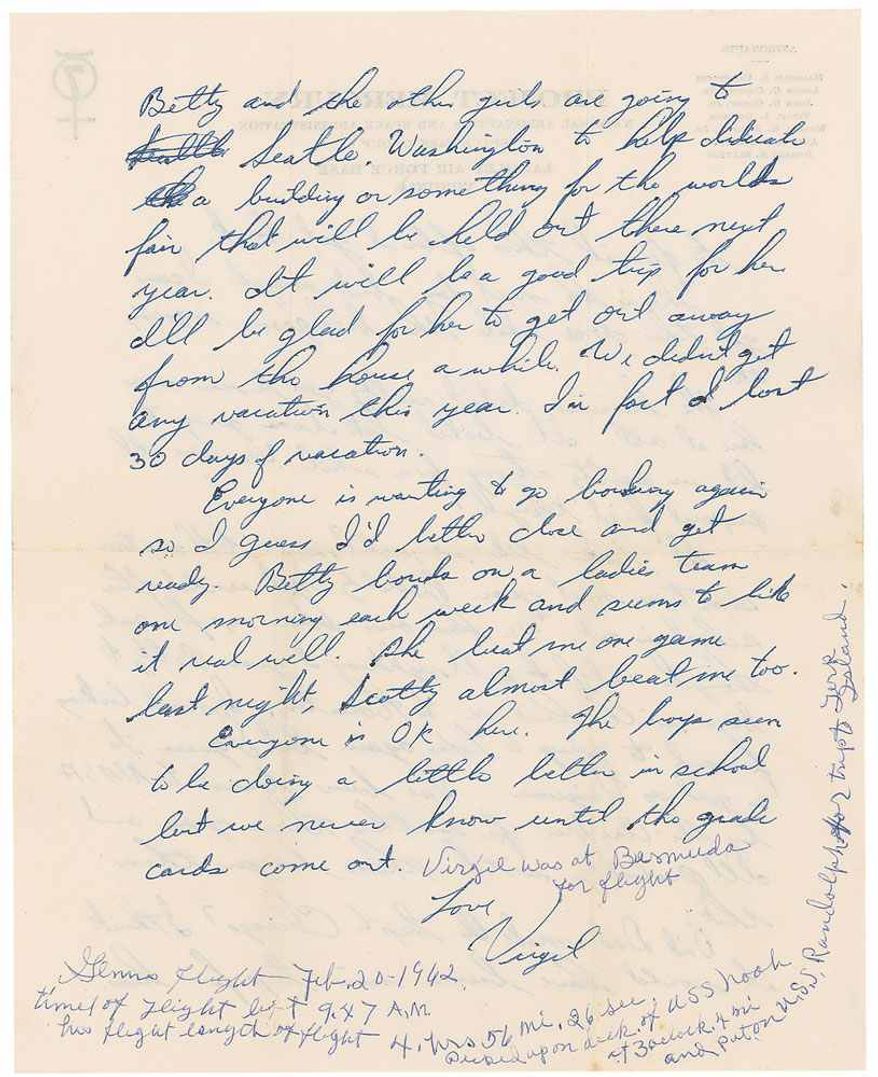 Betty and the other girls are going to
Seattle Seattle. Washington to help dedicate
a building or something for the worlds
fair that will be held out there next
year. It will be a good trip for her
I'll be glad for her to get out away
from the house a while. We didn't get
any vacation this year. In fact I lost
30 days of vacation.
Everyone is wanting to go bowling again
so I guess I'd better close and get
ready. Betty bowls on a ladies team
one morning each week and seems to like
it real well. She beat me one game
last night, Scotty almost beat me too.
Everyone is OK here. The boys seem
to be doing a little better in school
but we never know until the grade
cards come out. Virgil was at Bermuda
for flight
Love
Virgil
Glenns Flight Feb. 20-1962.
time of flight 9:47 A.M.
his flight length of flight 4, hrs 56 mi, 26 sec
Picked up on deck of USS Noah
at 3 oclock, 4 mi
and put on U.S.S. Randolph for trip to Terp
Island.